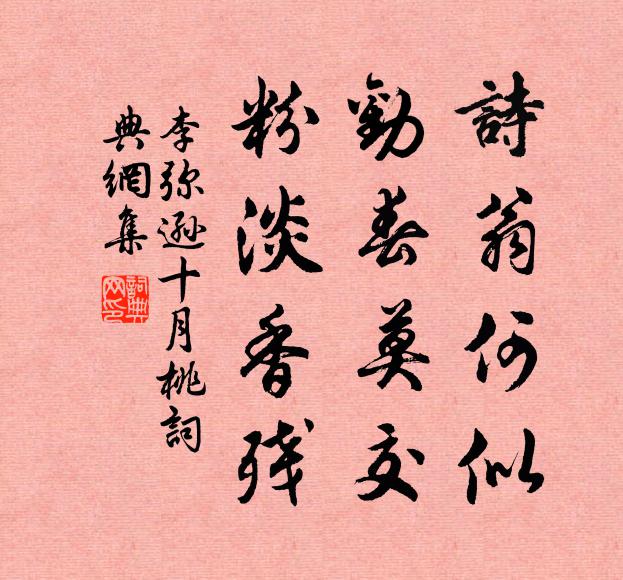 詩翁何似
勸春莫交
粉淡香残
李弥遜十月桃詞
典網集
詞典网印